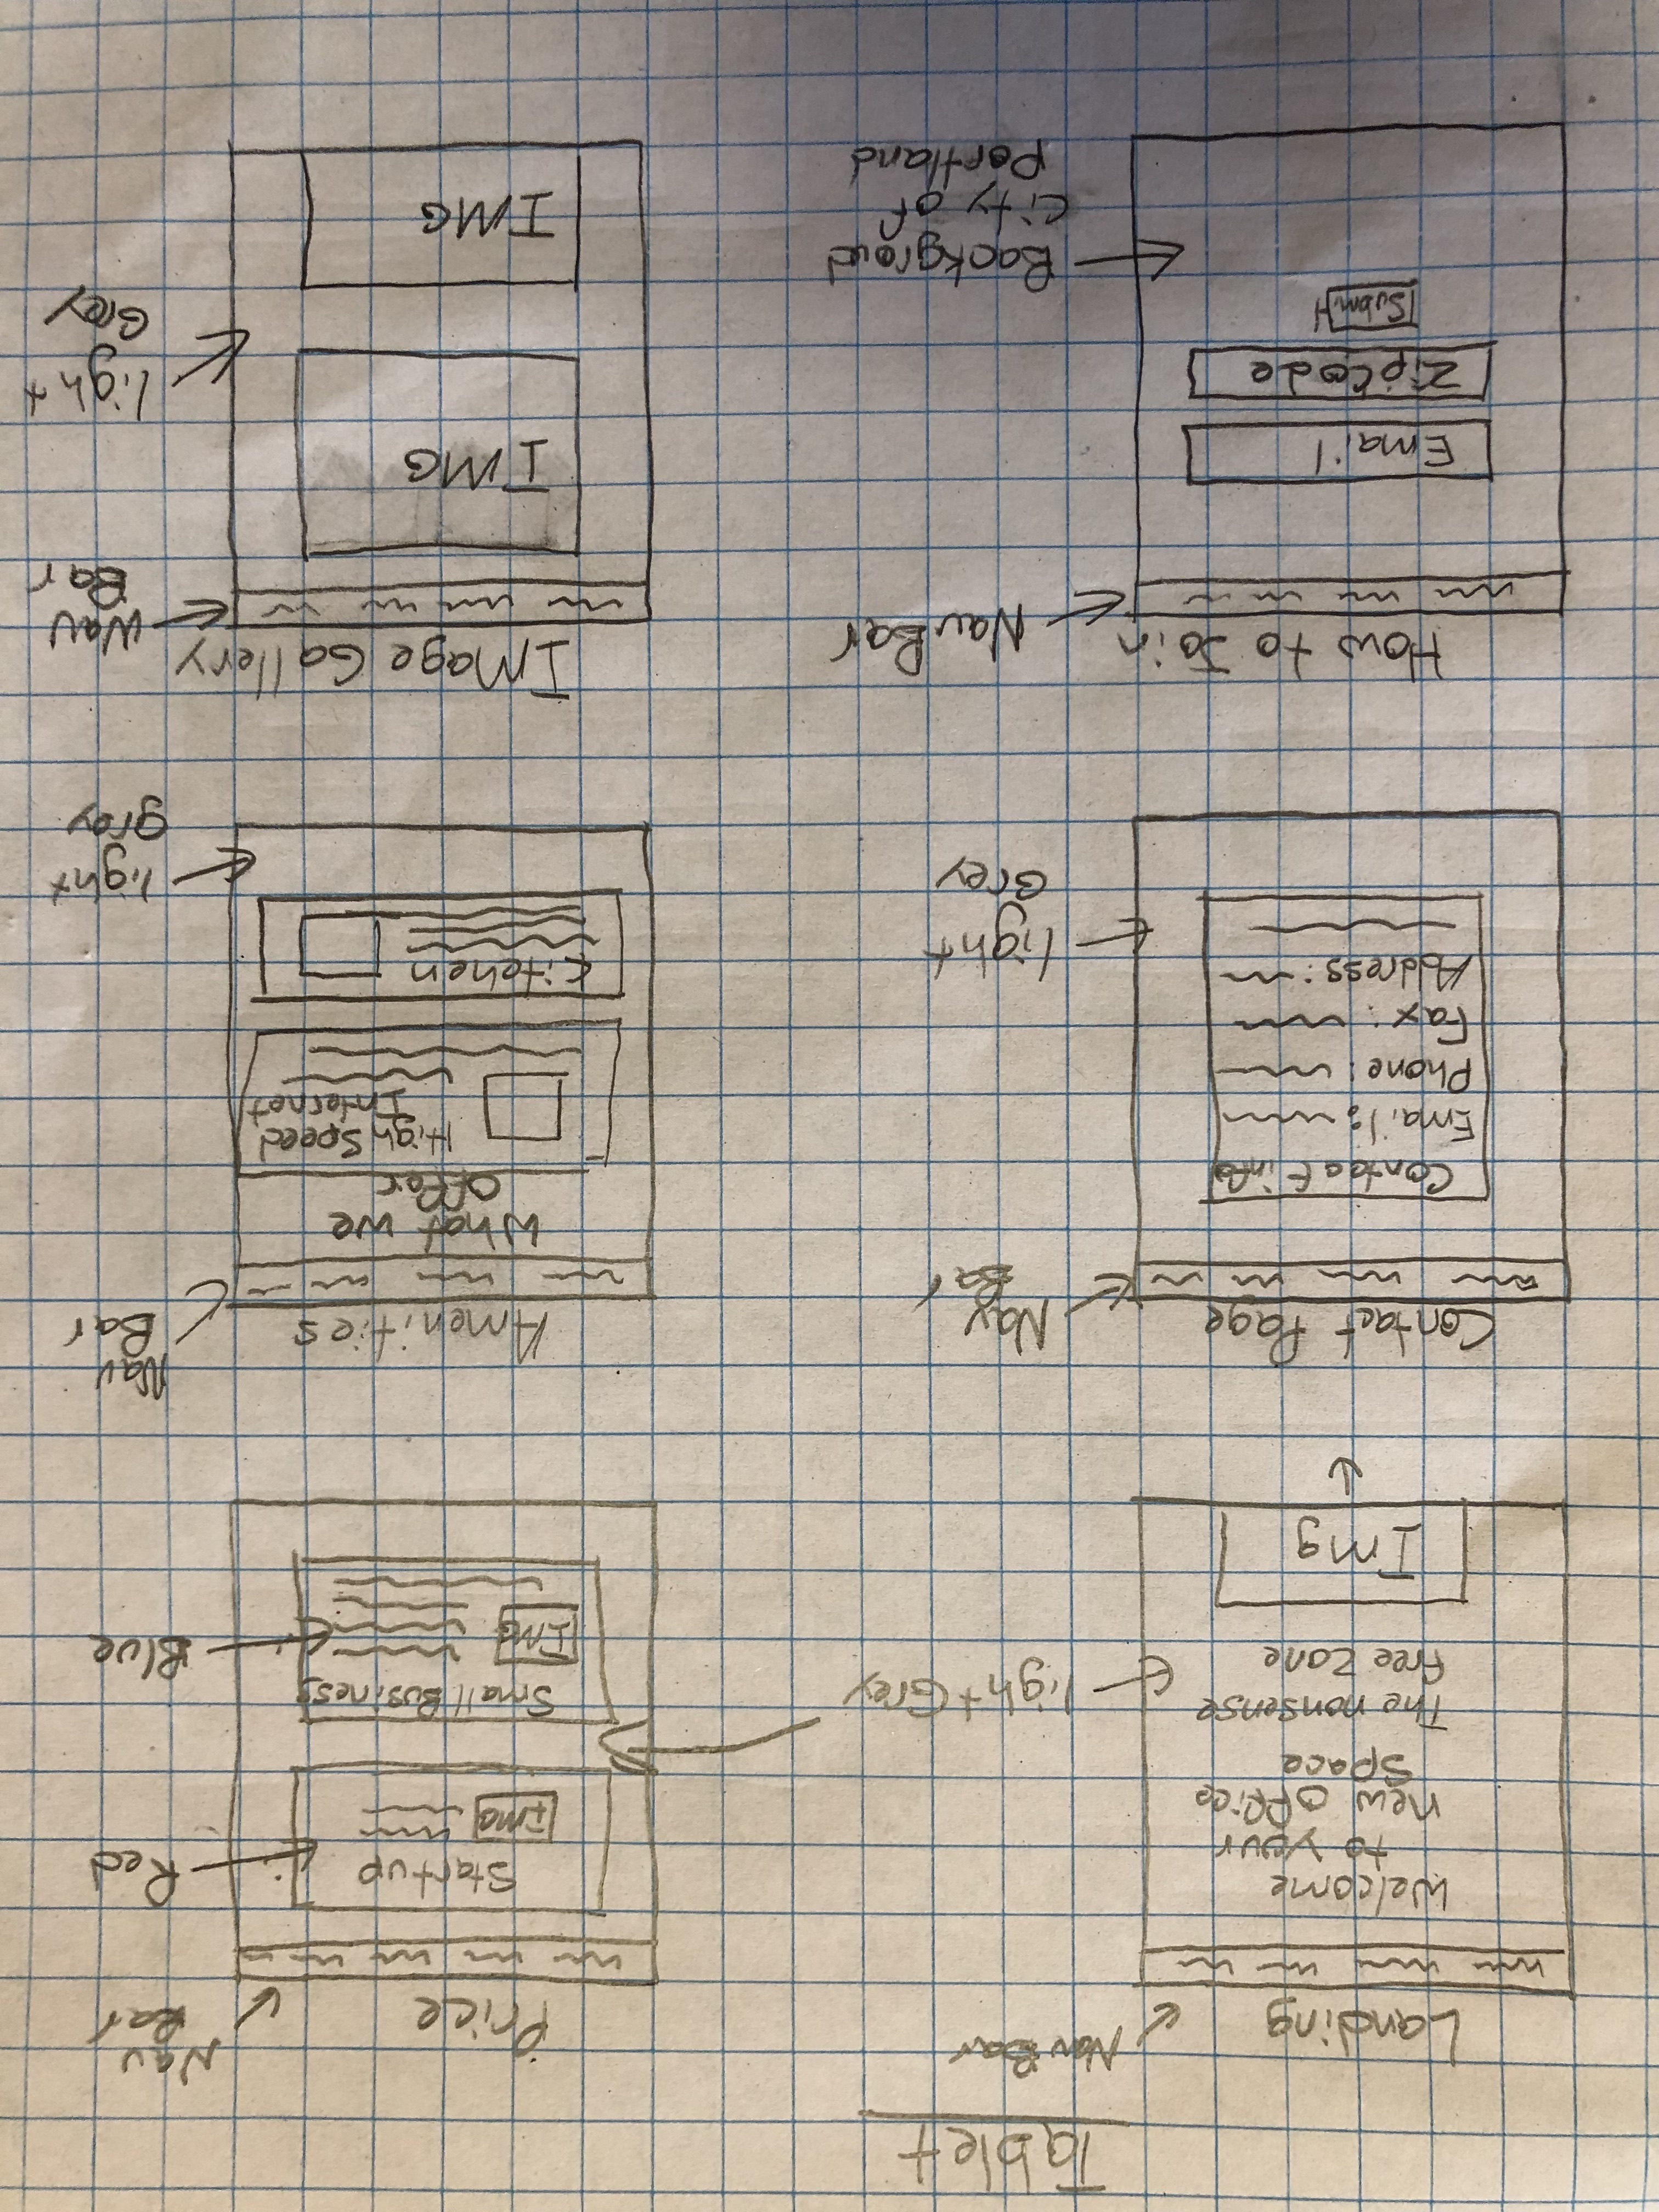 Tablet
Landing
Nav Bar
Welcome
to your
new office
space
The nonsense
Free Zone
Img
light Grey
Price
Nav
Bar
Startup
Img
Red
Small Business
IMG
Blue
Contact Page
Nav
Bar
Contact info
Email:
Phone:
Fax:
Address:
light
Grey
Amenities
Nav
Bar
What we
offer
High Speed
Internet
Kitchen
light
gray
How to Join
Nav Bar
Email
Zip Code
Submit
Backgroud
City of
Portland
Image Gallery
Nav
Bar
IMG
IMG
light
Grey